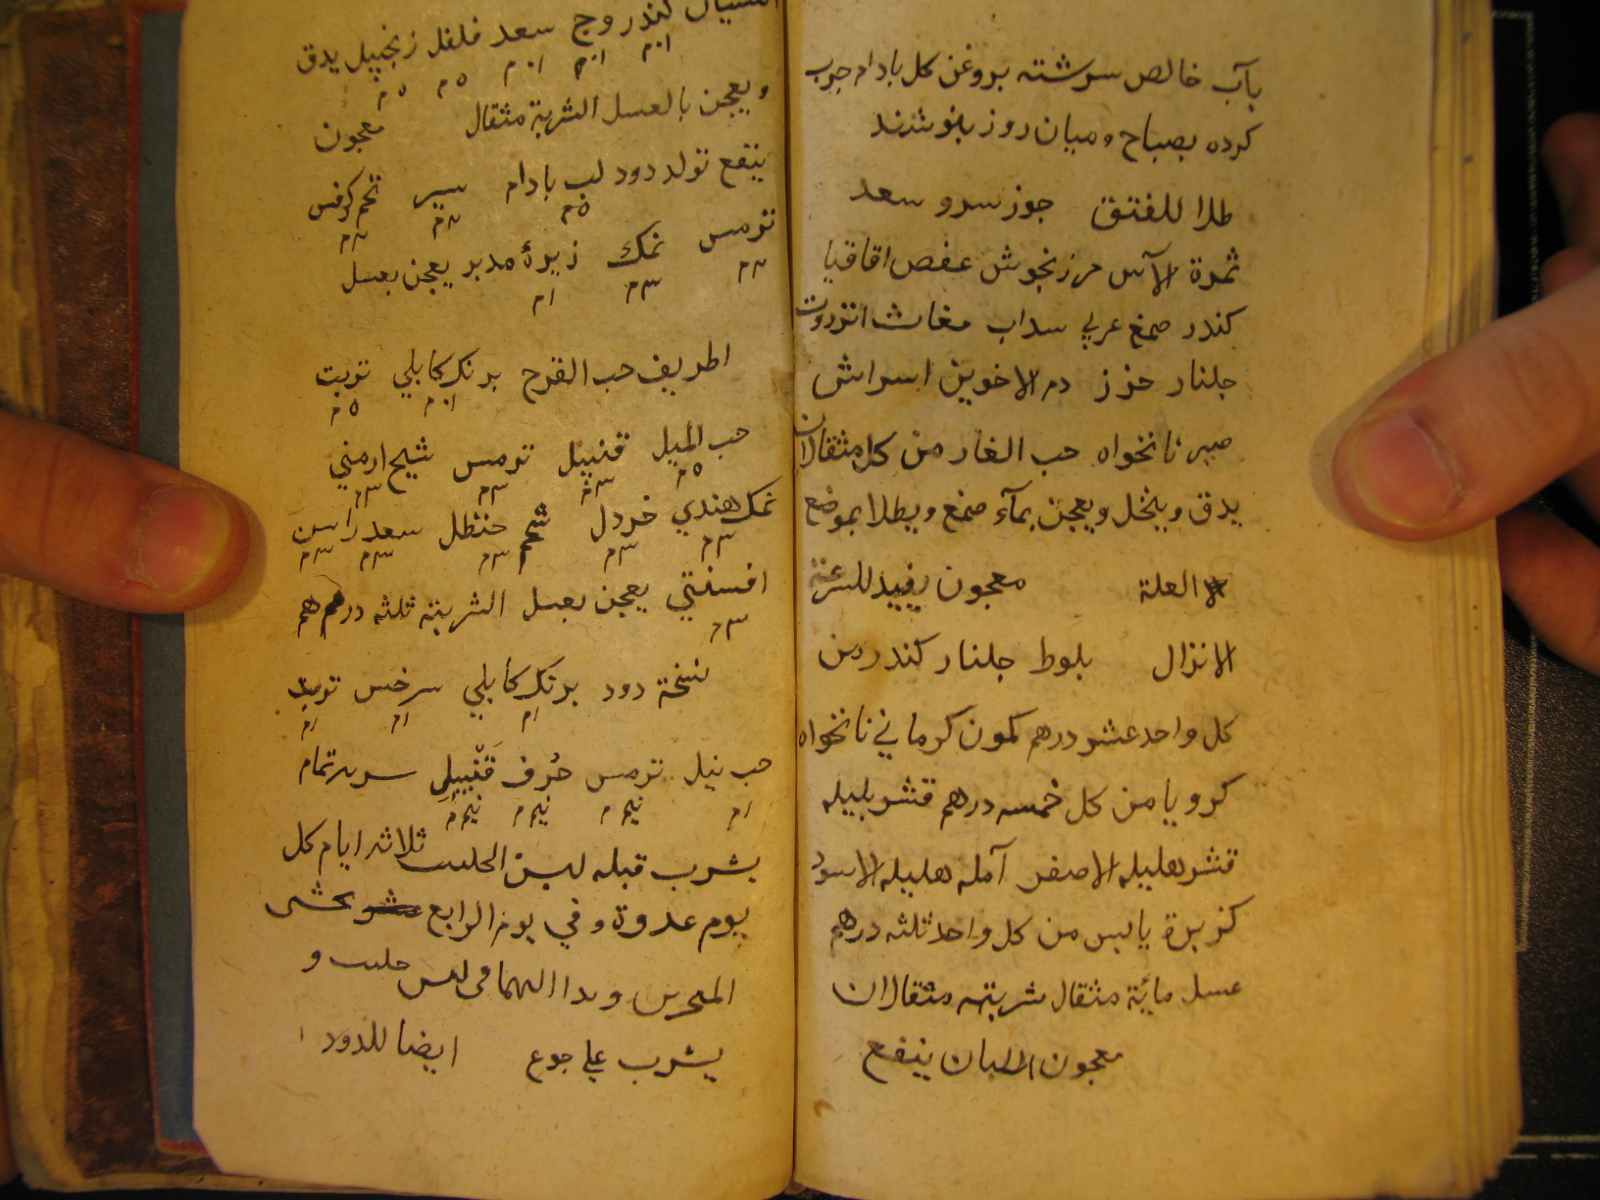 بآب خالص سرشته بروغن کل بادام جرب
کرده بصباح و میان روز بنوشند
طلا للفتق جوز سرو سعد
ثمرة الآس مرزنجوش عفص اقاقیا
کندر صمغ عربي سداب مغاث انزروت
جلنار خرز دم الاخوین اسراش
صبر نانخواه حب الغار من کل مثقالان
یدق وینخل ویعجن بمآء صمغ ویطلا بموضع
العلة معجون یفید للسرعة
الانزال بلوط جلنار کندر من
کل واحد عشر درهم کمون کرماني نانخواه
کرویا من کل خمسه درهم قشر بلیله
قشر هلیله الاصفر آمله هلیله الاسود
کزبرة یابس من کل واحد ثلثه درهم
عسل مائة مثقال شربته مثقالان
معجون ینفع
کندر وج سعد فلفل زنجبیل یدق
۱۰م ۱۰م ۱۰م ۵م ۵م
ویعجن بالعسل الشربة مثقال معجون
ینفع تولد دود لب بادام سیر تخم کرفس
۵م
ترمس نمک زیرۀ مدبر یعجن بعسل
۳م ۱م
اطریفل حب القرح برنک کابلي تربت
۱۰م ۵م
حب النیل قنبیل ترمس شیح ارمني
۵م ۳م ۳م ۳م
نمک هندي خردل شحم حنظل سعد راسن
۳م ۳م ۳م ۳م ۳م
افسنتین یعجن بعسل الشربة ثلثه درهم
۳م
نسخة دود برنک کابلي سرخس تربت
۱م ۱م ۱م
حب نیل ترمس حُرف قَنْبیلِ
۱م نیم م نیم م نیم م
یشرب قبله لبن الحلیب ثلاثه ایام کل
یوم غدوة و في یوم الرابع
حلیب و
یشرب علي جوع ایضا للدود